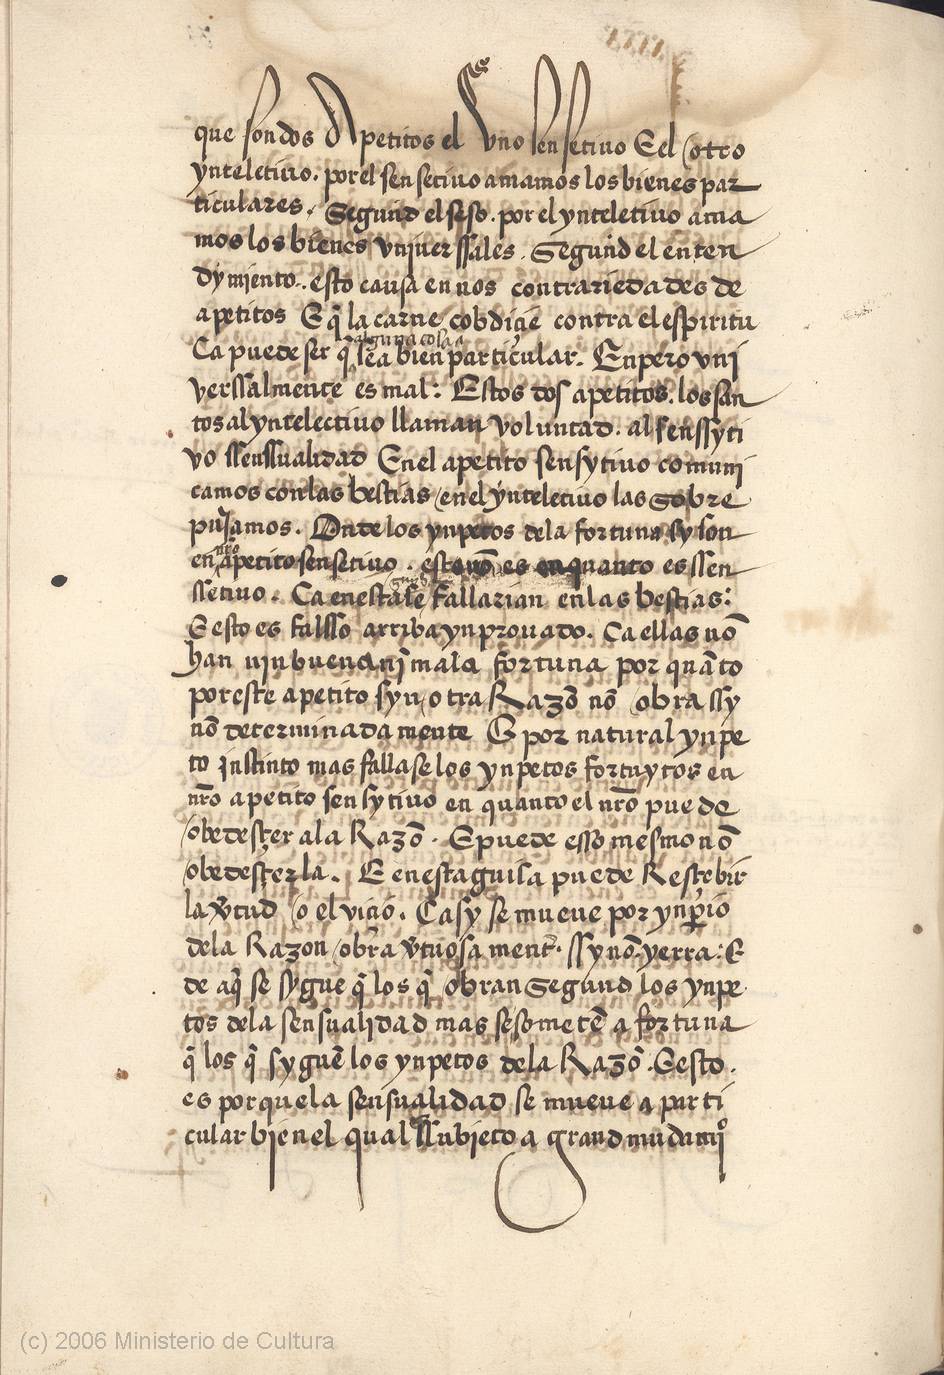 que son dos Apetitos el vno sensetiuo E el otro
ynteletiuo. por el sensetiuo amamos los bienes par
ticulares. Segund el seso. por el ynteletiuo ama
mos los bienes vnjuerssales. Segund el enten
dymiento. esto causa en nos contrariedades de
apetitos E q̃ la carne cobdiçie contra el espiritu
alguna cosa a
Ca puede ser q̃ sea bien particular. Enpero vnj
verssalmente es mal: Estos dos apetitos. los san
tos al yntelectiuo llaman voluntad. al senssyti
vo ssenssualidad En el apetito sensytiuo comuni
camos con las bestias en el ynteletiuo las sobre
pujamos. Onde los ynpetos dela fortuna sy son
nr̃o
en apetito sensetiuo. esto nõ es en quanto es ssen
ssetiuo. Ca en esta se fallarian en las bestias:
E esto es falsso arriba ynprouado. Ca ellas nõ
han nin buena nj̃ mala fortuna por quãto
por este apetito syn otra Razõ nõ obra ssy
nõ determinadamente E por natural ynpe
to jnstinto mas fallase los ynpetos fortuytos en
nr̃o apetito sensytiuo en quanto el nr̃o puede
obedesçer ala Razõ. E puede esso mesmo nõ
obedesçerla. E en esta guisa puede Resçebir
la vtud o el viçio. Ca sy se mueue por ynperio
dela Razon obra vtuosa ment. ssy nõ yerra: E
de aq̃ se sygue q̃ los q̃ obran segund los ynpe
tos dela sensualidad mas se someten a fortuna
q̃ los q̃ syguẽ los ynpetos dela Razõ. E esto.
es porque la sensualidad se mueue a parti
cular bien el qual es ssubieto a grand mudamjº
(c) 2006 Ministerio de Cultura